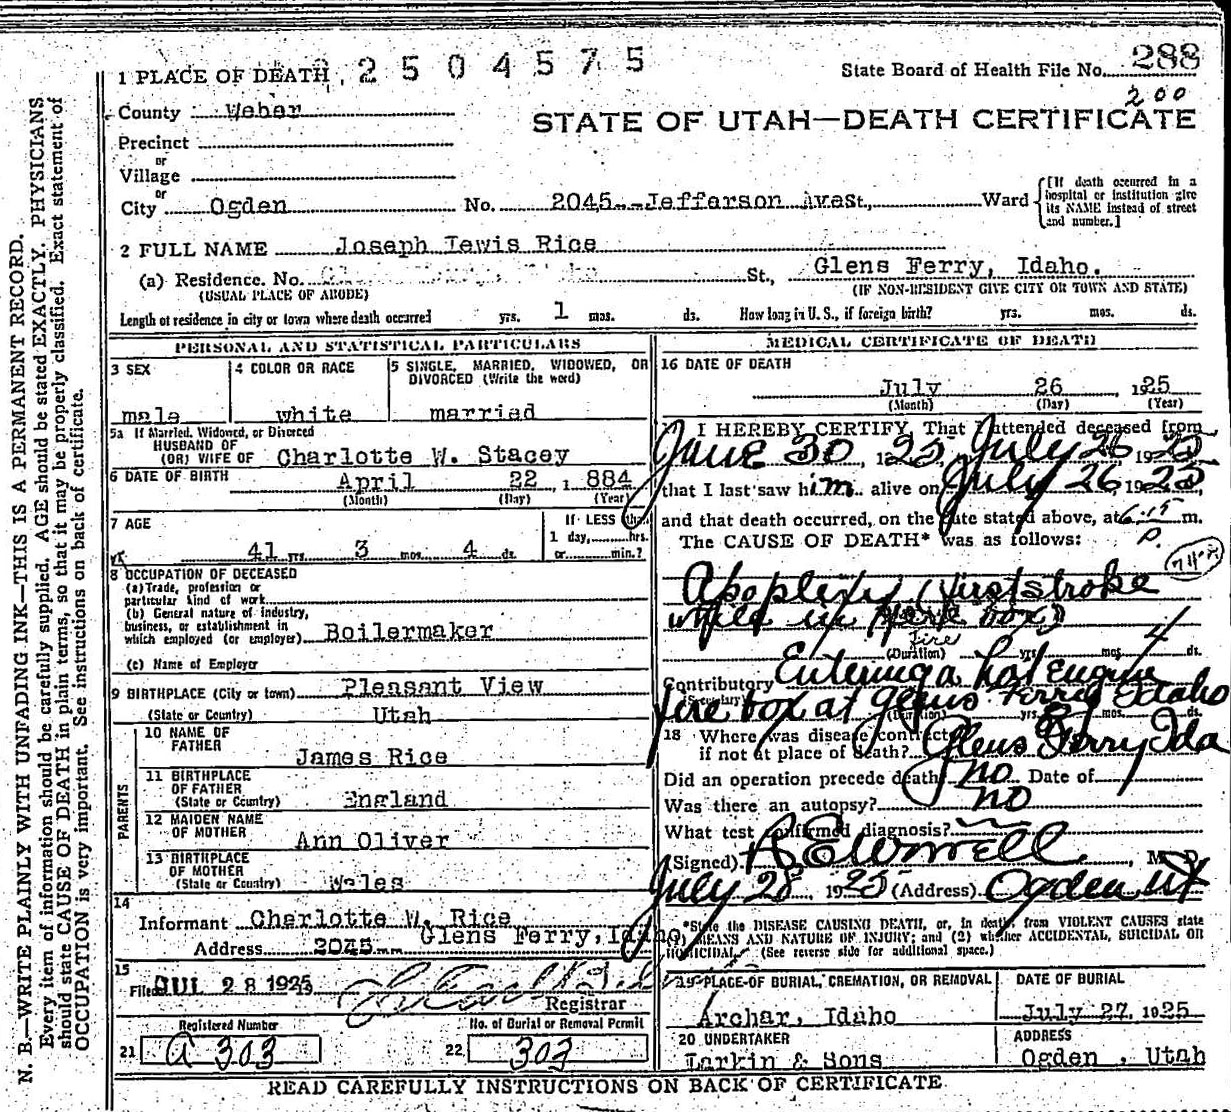 1 PLACE OF DEATH, 2 5 0 4 5 7 5
State Board of Health File No. 288
200
County Weber
STATE OF UTAH—DEATH CERTIFICATE
Precinct
or
Village
or
City Ogden No. 2045--Jefferson Ave St., Ward
[If death occurred in a
hospital or institution give
its NAME instead of street
and number.]
2 FULL NAME Joseph Lewis Rice
(a) Residence. No. St., Glens Ferry, Idaho.
(USUAL PLACE OF ABODE) (IF NON-RESIDENT GIVE CITY OR TOWN AND STATE)
Length of residence in city or town where death occurred yrs. 1 mos. ds. How long in U. S., if foreign birth? yrs. mos. ds.
PERSONAL AND STATISTICAL PARTICULARS
3 SEX
male
4 COLOR OR RACE
white
5 SINGLE, MARRIED, WIDOWED, OR
DIVORCED (Write the word)
married
5a If Married, Widowed, or Divorced
HUSBAND OF
(OR) WIFE OF Charlotte W. Stacey
6 DATE OF BIRTH April 22, 1884
(Month) (Day) (Year)
7 AGE
41 yrs. 3 mos. 4 ds.
If LESS than
1 day, hrs.
or min.?
8 OCCUPATION OF DECEASED
(a) Trade, profession or
particular kind of work
(b) General nature of industry,
business, or establishment in
which employed (or employer) Boilermaker
(c) Name of Employer
9 BIRTHPLACE (City or town) Pleasant View
(State or Country) Utah
PARENTS
10 NAME OF
FATHER James Rice
11 BIRTHPLACE
OF FATHER
(State or Country) England
12 MAIDEN NAME
OF MOTHER Ann Oliver
13 BIRTHPLACE
OF MOTHER
(State or Country) Wales
14
Informant Charlotte W. Rice
Address 2045-- Glens Ferry, Idaho
15
Filed JUL 28 1925
Registrar
Registered Number
21 a 303
No. of Burial or Removal Permit
22 303
MEDICAL CERTIFICATE OF DEATH
16 DATE OF DEATH
July 26 1925
(Month) (Day) (Year)
I HEREBY CERTIFY, That I attended deceased from
June 30, 1925 July 26 1925
that I last saw him alive on July 26, 1925,
and that death occurred, on the date stated above, at 6.15 m.
P.
The CAUSE OF DEATH* was as follows:
Apoplexy (first stroke
while in fire box)
Fire
(Duration) yrs. mos. 4 ds.
Contributory Entering a hot engine
fire box at Glens Ferry Idaho
(Duration) yrs. mos. ds.
18 Where was disease contracted
if not at place of death? Glens Ferry Ida
Did an operation precede death? no Date of
Was there an autopsy? no
What test confirmed diagnosis?
(Signed) , M. D.
July 28 1925 (Address) Ogden Ut
*State the DISEASE CAUSING DEATH, or, in death from VIOLENT CAUSES state
(1) MEANS AND NATURE OF INJURY; and (2) whether ACCIDENTAL, SUICIDAL OR
HOMICIDAL. (See reverse side for additional space.)
19 PLACE OF BURIAL, CREMATION, OR REMOVAL
Archar, Idaho
DATE OF BURIAL
July 27, 1925
20 UNDERTAKER
Larkin & Sons
ADDRESS
Ogden, Utah
READ CAREFULLY INSTRUCTIONS ON BACK OF CERTIFICATE
N. B.—WRITE PLAINLY WITH UNFADING INK—THIS IS A PERMANENT RECORD.
Every item of information should be carefully supplied. AGE should be stated EXACTLY. PHYSICIANS
should state CAUSE OF DEATH in plain terms, so that it may be properly classified. Exact statement of
OCCUPATION is very important. See instructions on back of certificate.